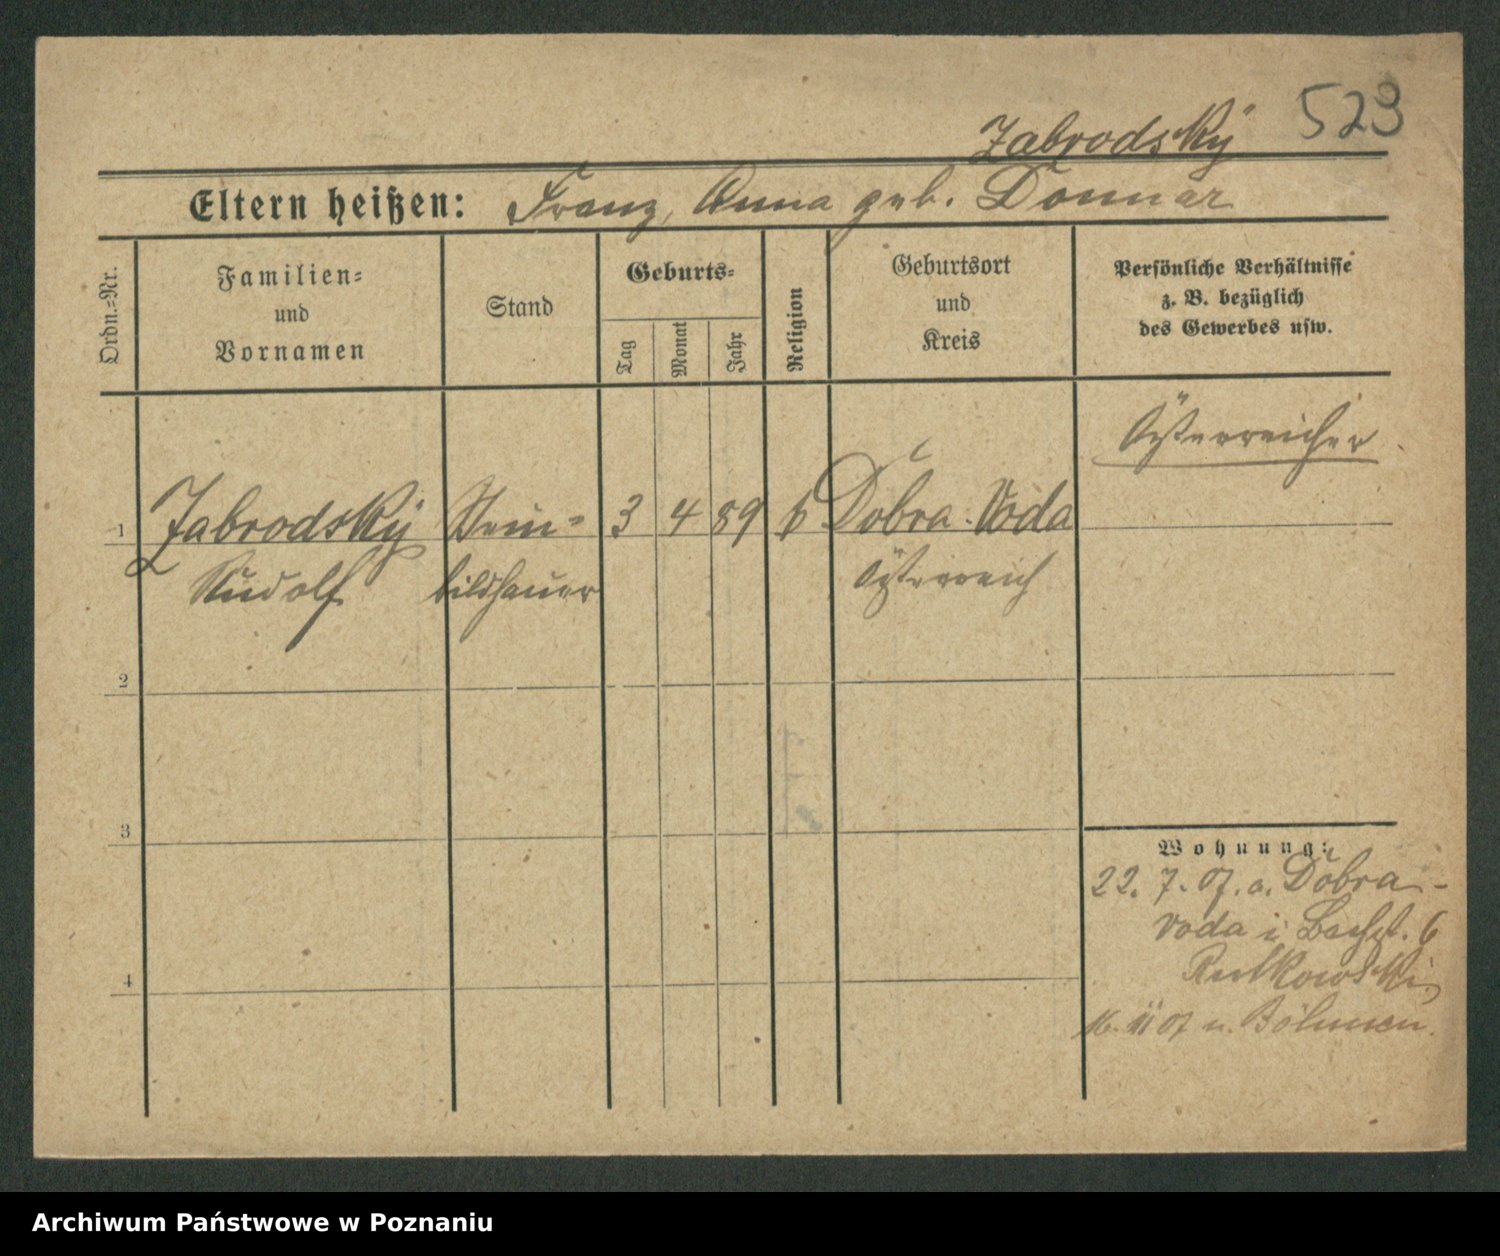 523
Zabrodský
Eltern heißen: Franz, Anna geb. Donnar
Ordn.=Nr.
Familien=
und
Vornamen
Stand
Geburts=
Tag
Monat
Jahr
Religion
Geburtsort
und
Kreis
Persönliche Verhältnisse
z. B. bezüglich
des Gewerbes usw.
Österreicher
1 Zabrodský Stein= 3 4 89 k Dobra Voda
Rudolf bildhauer Österreich
2
3
4
Wohnung:
22. 7. 07. a. Dobra-
voda i 6
Rutkowski
16. 11 07 n. Böhmen.
Archiwum Państwowe w Poznaniu